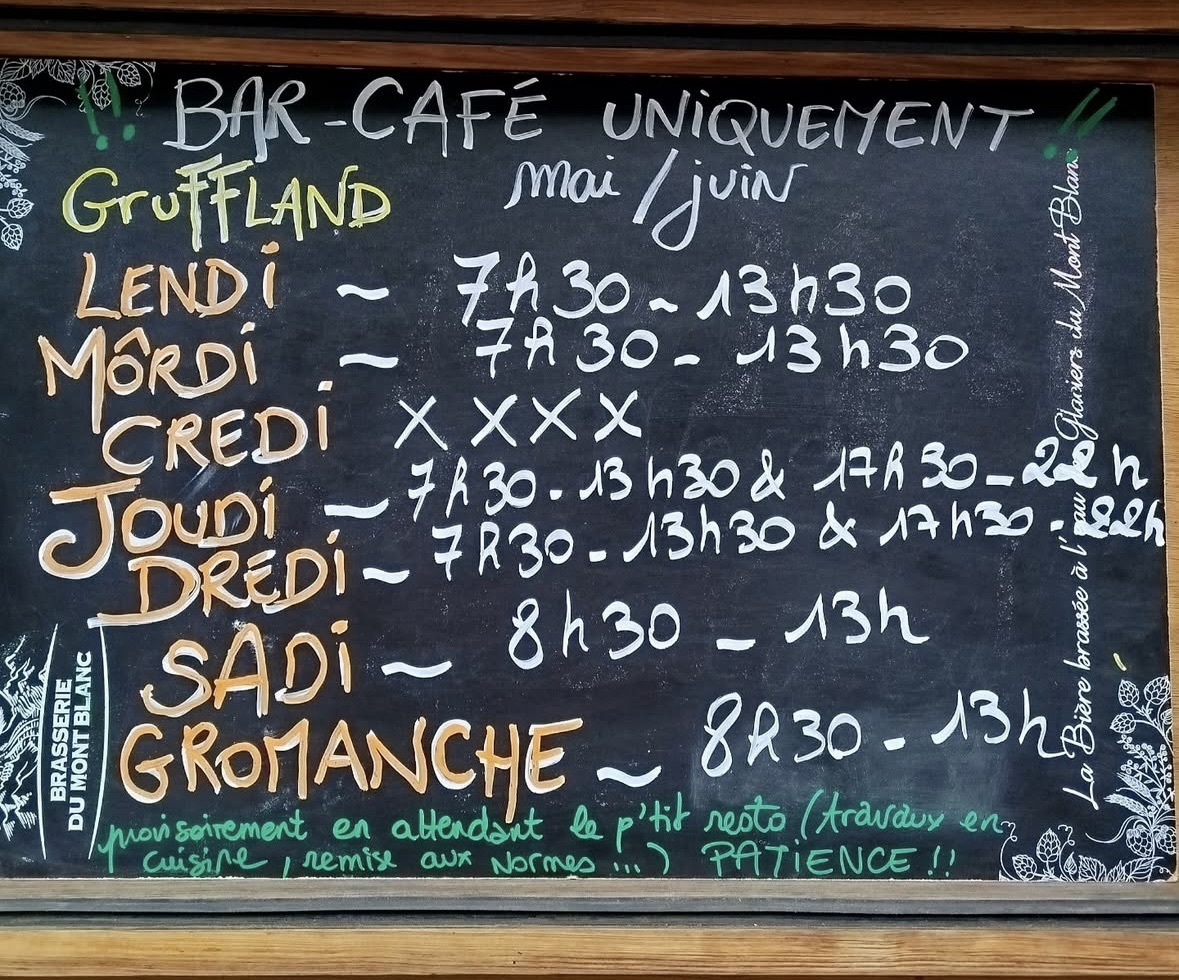 !! BAR-CAFÉ UNIQUEMENT !!
GruFFLAND mai/juin
LENDi ~ 7h30 - 13h30
MÔRDi ~ 7h30 - 13h30
CREDi X X X X
JOUDi ~ 7h30 - 13h30 & 17h30 - 22h
DREDi ~ 7h30 - 13h30 & 17h30 - 22h
SADi ~ 8h30 - 13h
GROMANCHE ~ 8h30 - 13h
provisoirement en attendant le p'tit resto (travaux en
cuisine, remise aux Normes ...) PATIENCE !!
BRASSERIE
DU MONT BLANC
La Bière brassée à l'eau des Glaciers du Mont Blanc